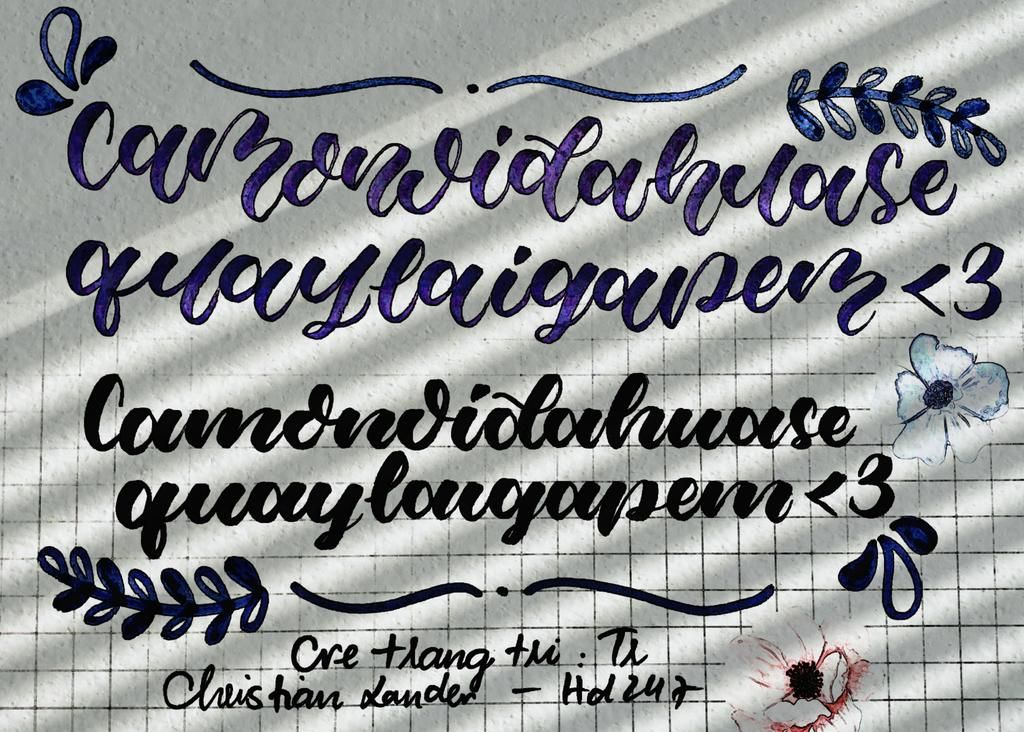 Camonvidahuase
quaylaigapem <3
Camonvidahuase
quaylaigapem <3
Cre trang trí : Tr
Christian Lander - Hd247